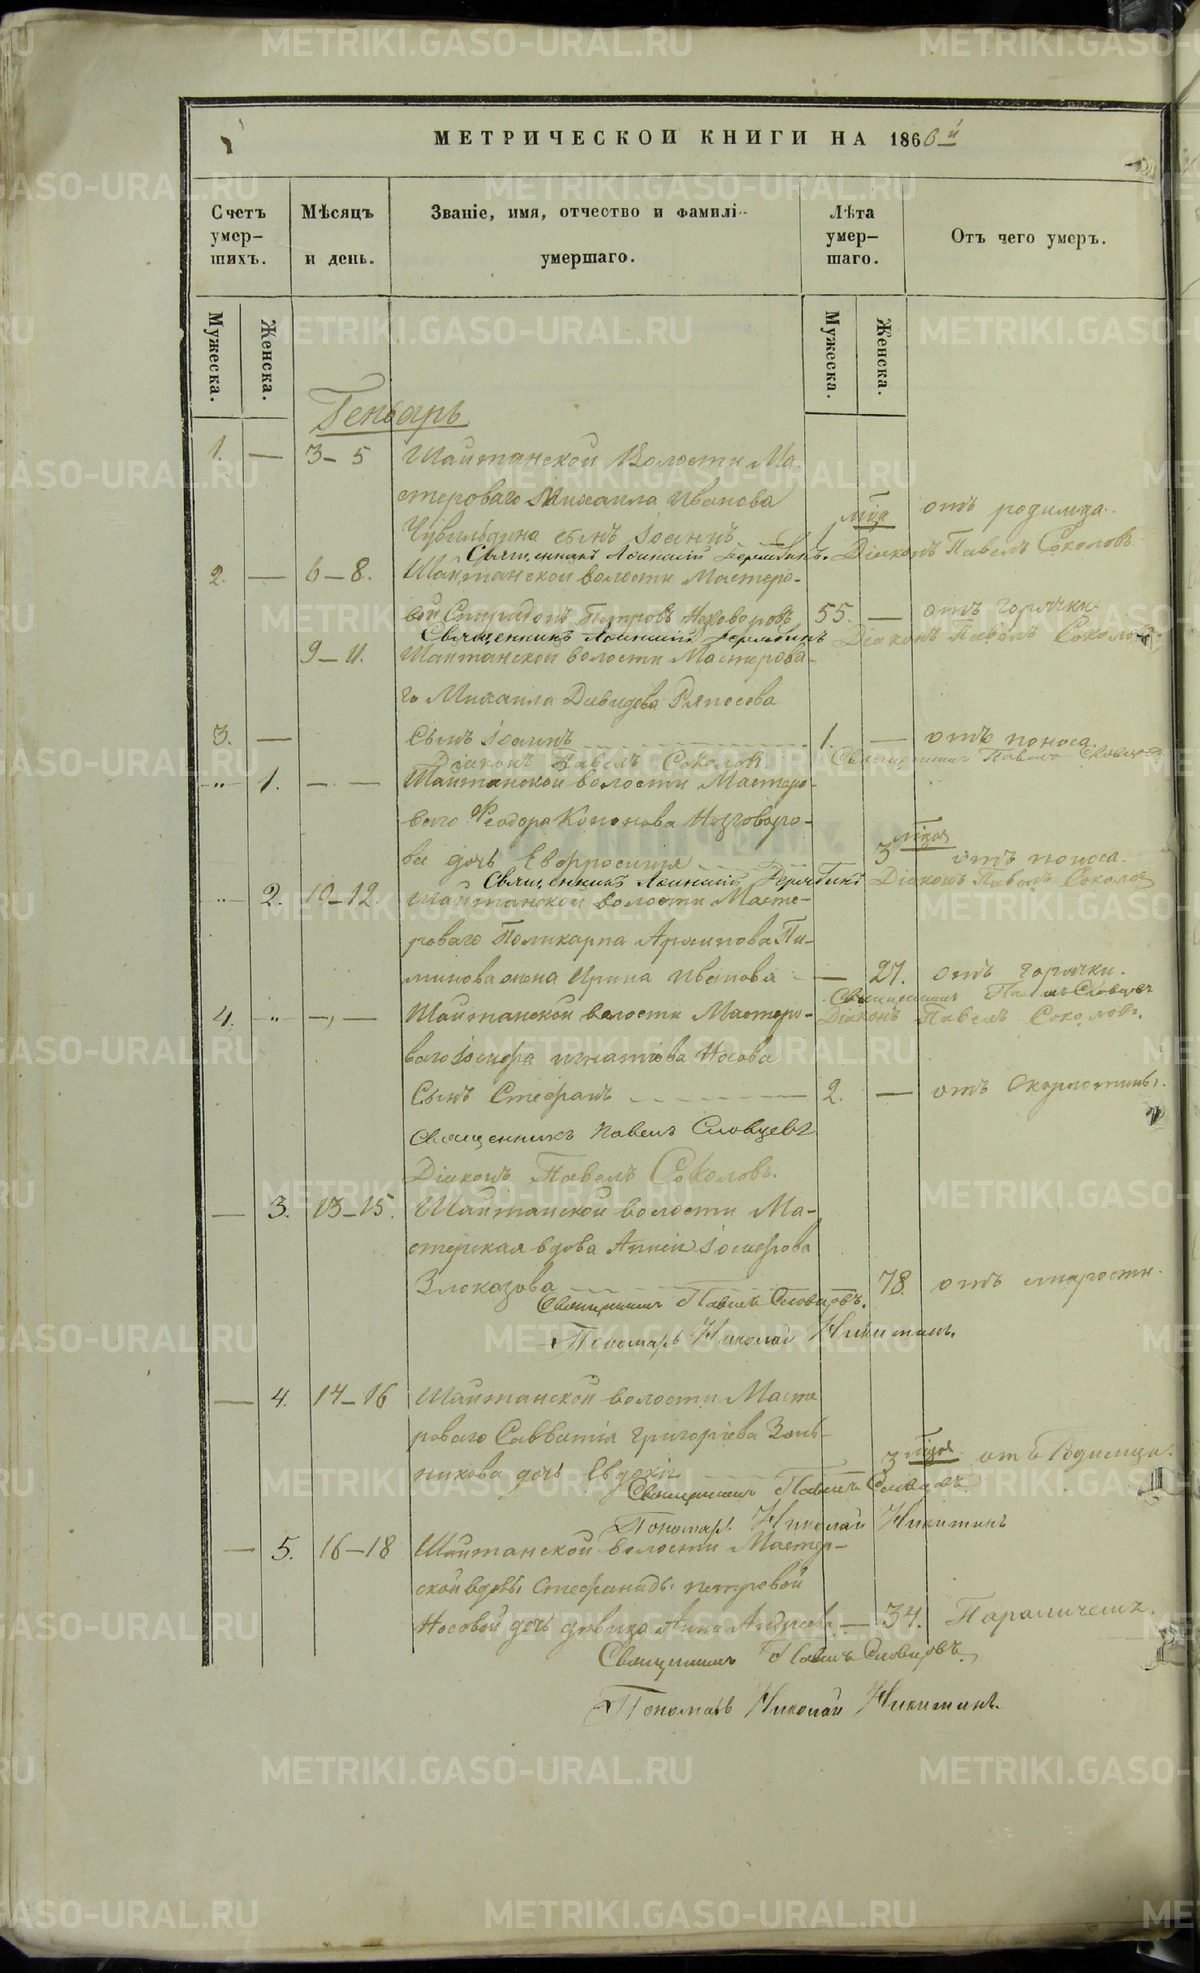 МЕТРИЧЕСКОЙ КНИГИ НА 1866 й
Счетъ умер-шихъ.
Мѣсяцъ и день.
Званіе, имя, отчество и фамилі-- умершаго.
Лѣта умер-шаго.
Отъ чего умеръ.
Мужеска.
Женска.
Мужеска.
Женска.
Генварь
1. — 3-5 Шайтанской Волости Ма-
стероваго Михаила Иванова
сынъ Іоаннъ отъ родимца.
Священникъ Діаконъ Павелъ Соколовъ
2. — 6-8. Шайтанской волости Мастеро-
вой Спиридонъ Петровъ 55. — отъ горячки
Священникъ Діаконъ Павелъ Соколовъ
9-11. Шайтанской волости Мастерова-
го Михаила Давидова Ряпосова
3. — сынъ Іоаннъ 1. — отъ поноса.
Діаконъ Павелъ Соколовъ Священникъ Павелъ Словцовъ
-"- 1. — — Шайтанской волости Мастеро-
ваго Феодора Кононова
ва дочь Евфросинія 3 отъ поноса.
Священникъ Діаконъ Павелъ Соколовъ
-"- 2. 10-12. Шайтанской волости Масте-
роваго Поликарпа Архипова Пи-
минова жена Ирина Иванова — 27. отъ горячки.
Священникъ Павелъ Словцовъ
4. -"- —,— Шайтанской волости Мастеро-
Діаконъ Павелъ Соколовъ.
ваго Іосифа Игнатіева Носова
Сынъ Стефанъ 2. — отъ Скарлатины.
Священникъ Павелъ Словцовъ
Діаконъ Павелъ Соколовъ.
— 3. 13-15. Шайтанской волости Ма-
стерская вдова Анна Іосифова
Злоказова 78. отъ старости.
Священникъ Павелъ Словцовъ.
Пономарь Николай Никитинъ.
— 4. 14-16 Шайтанской волости Масте
роваго Савватія Григоріева Зонь-
никова дочь Евдокія 3 отъ Родимца.
Священникъ Павелъ Словцовъ
Пономарь Николай Никитинъ
— 5. 16-18 Шайтанской волости Мастер-
ской вдовы Стефаниды Петровой
Носовой дочь дѣвица Анна Андреева — 34. Параличемъ.
Священникъ Павелъ Словцовъ.
Пономарь Николай Никитинъ.
METRIKI.GASO-URAL.RU